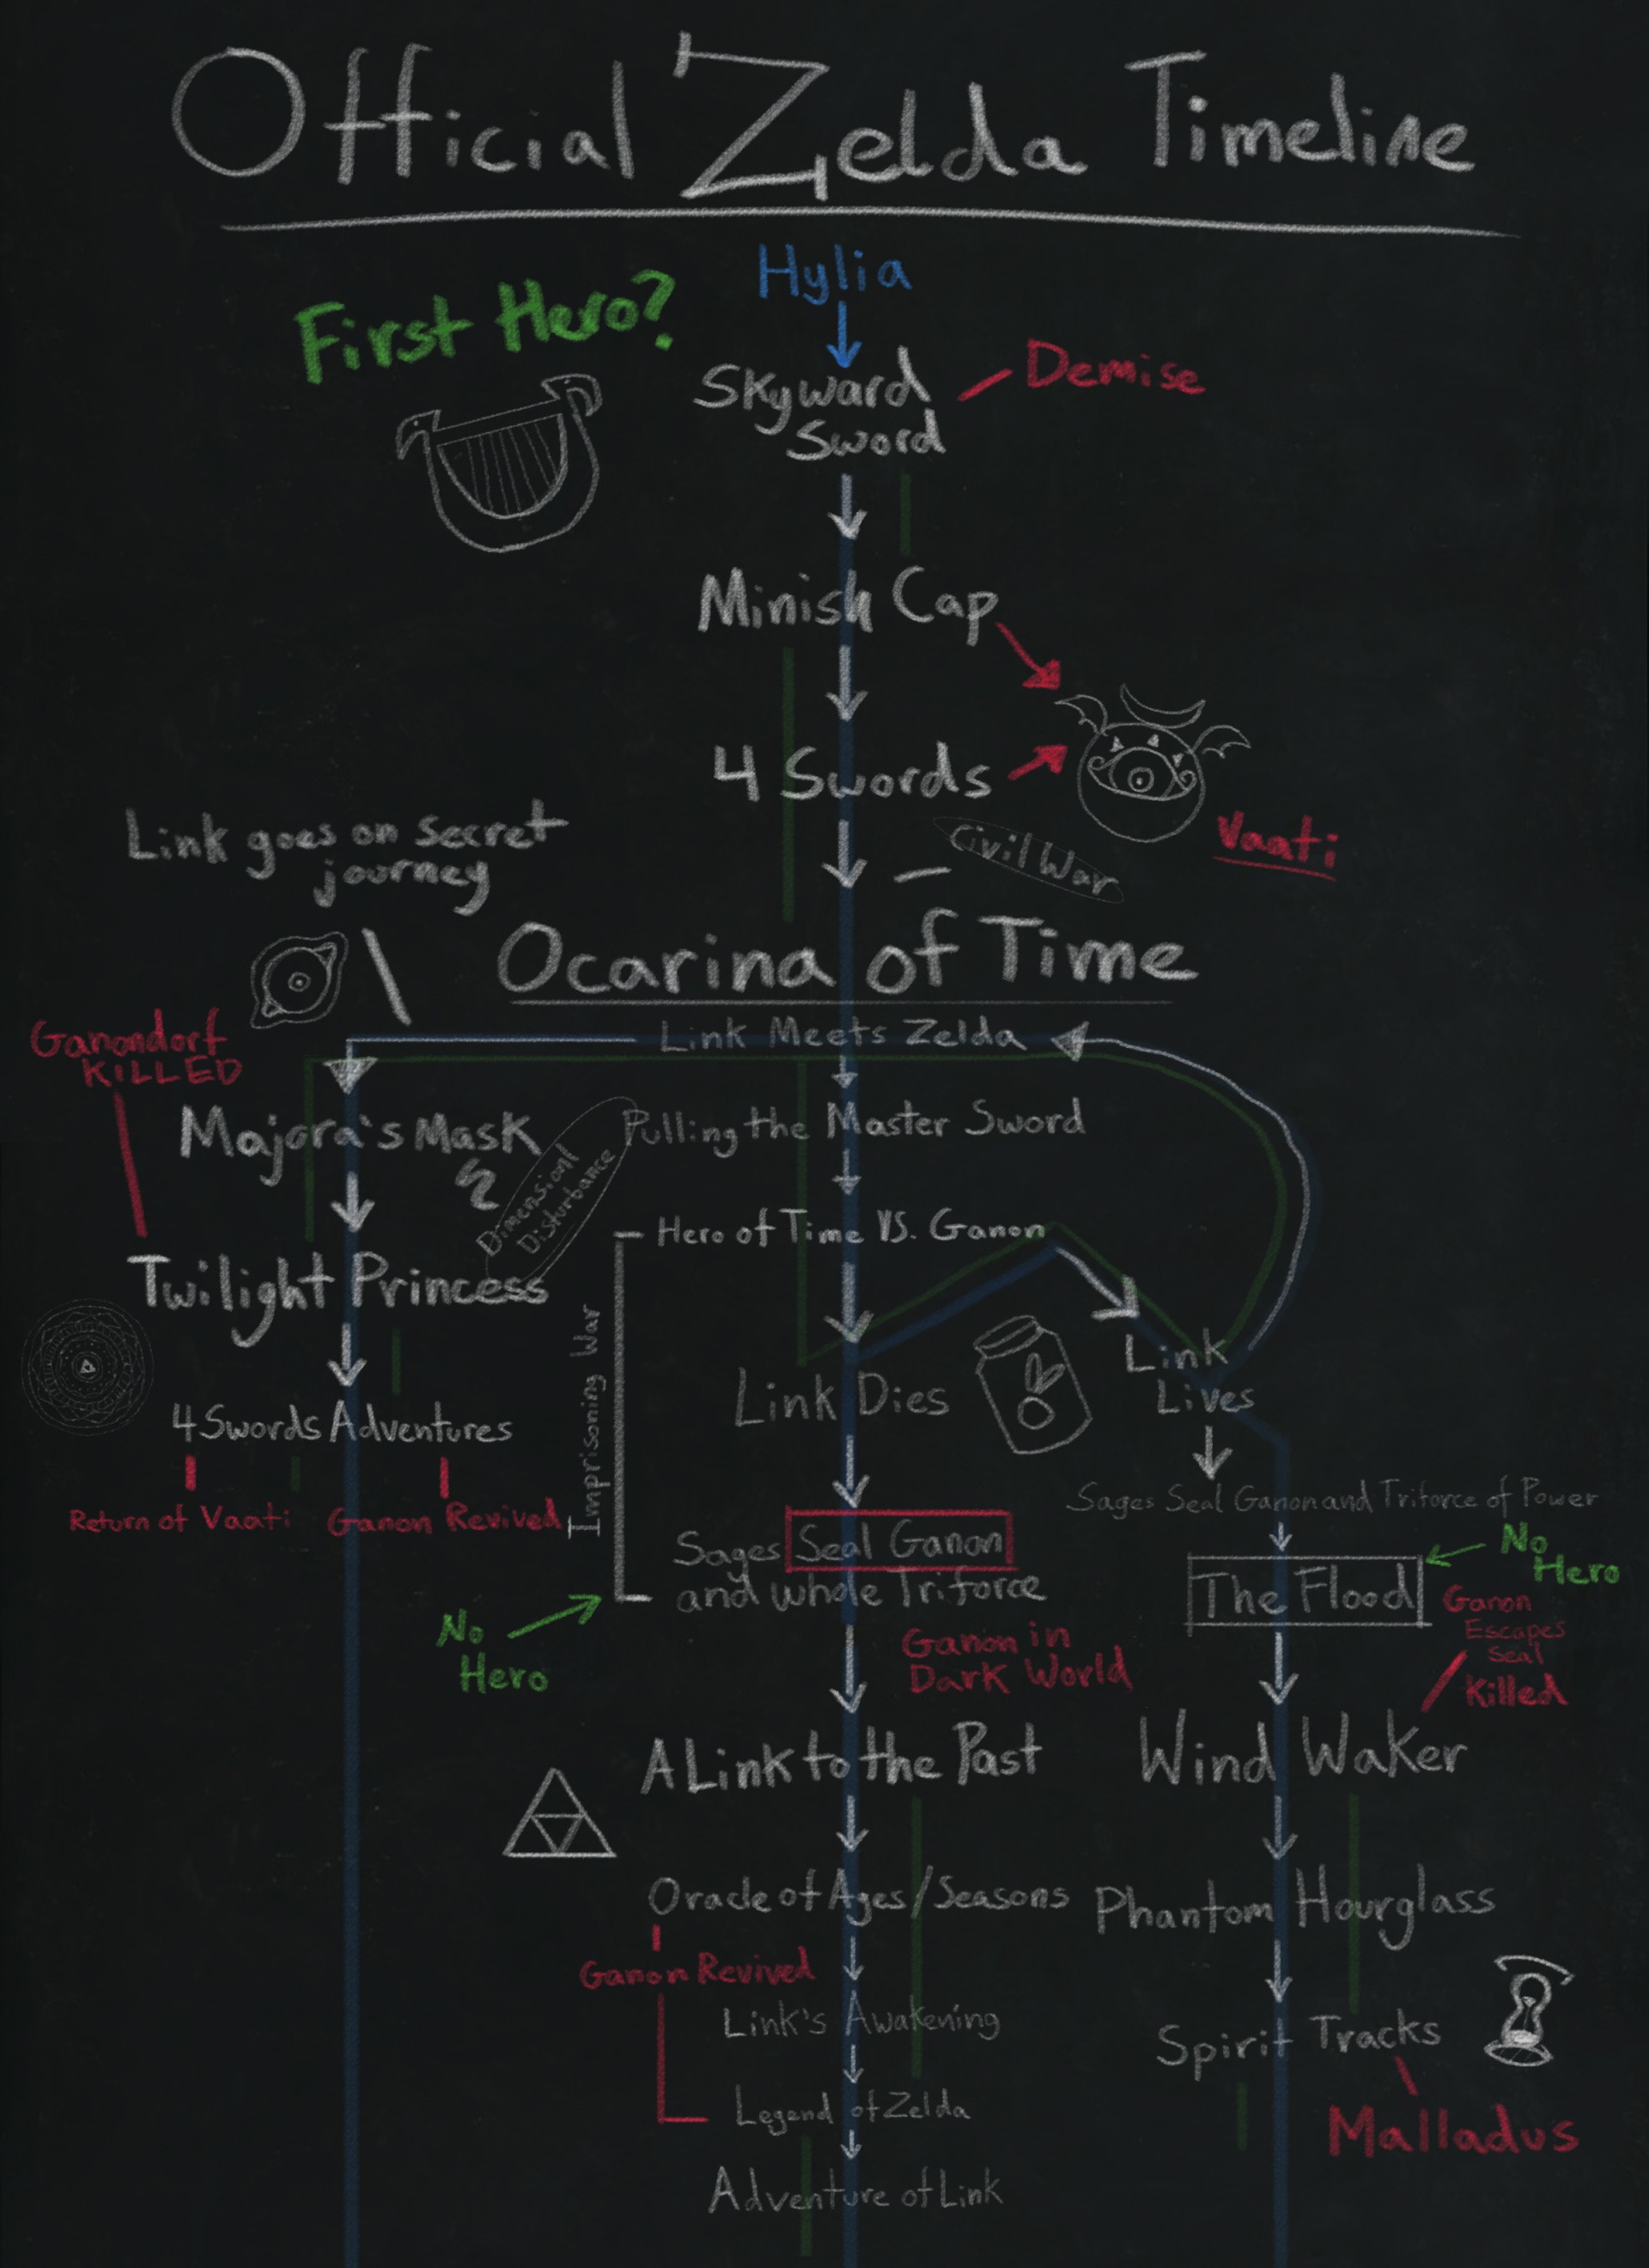 Official Zelda Timeline
Hylia
First Hero?
Skyward
Sword
Demise
Minish Cap
4 Swords
Vaati
Civil War
Link goes on secret
journey
Ocarina of Time
Link Meets Zelda
Ganondorf
KILLED
Majora's Mask
Pulling the Master Sword
Dimensionl
Disturbance
Hero of Time VS. Ganon
Twilight Princess
Imprisoning War
Link Dies
Link
Lives
4 Swords Adventures
Return of Vaati
Ganon Revived
Sages Seal Ganon and Triforce of Power
Sages Seal Ganon
and whole Triforce
No
Hero
The Flood
No
Hero
Ganon
Escapes
Seal
Killed
Ganon in
Dark World
A Link to the Past
Wind Waker
Oracle of Ages/Seasons
Phantom Hourglass
Ganon Revived
Link's Awakening
Spirit Tracks
Legend of Zelda
Malladus
Adventure of Link